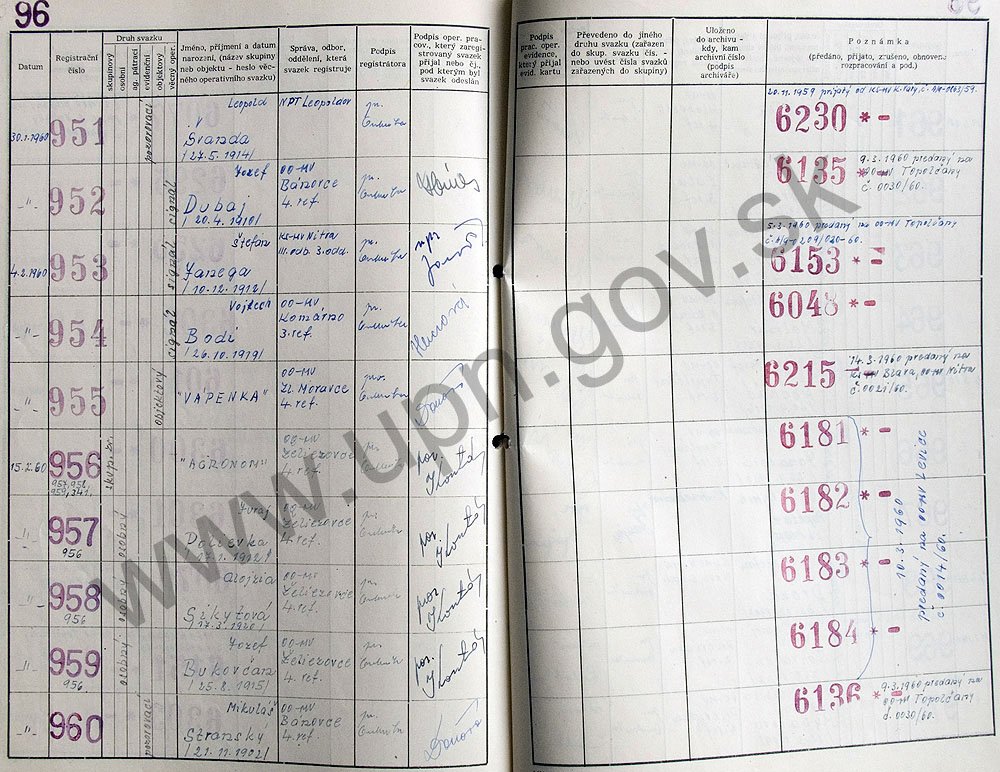 96
Datum
Registrační
číslo
Druh svazku
skupinový
osobní
ag. pátrací
evidenční
objektový
věcný oper.
Jméno, příjmení a datum
narození, (název skupiny
neb objektu - heslo věc-
ného operativního svazku)
Správa, odbor,
oddělení, která
svazek registruje
Podpis
registrátora
Podpis oper. pra-
cov., který zaregi-
strovaný svazek
přijal nebo čj.,
pod kterým byl
svazek odeslán
Podpis
prac. oper.
evidence,
který přijal
evid. kartu
Převedeno do jiného
druhu svazku (zařazen
do skup. svazku čís. -
nebo uvést čísla svazků
zařazených do skupiny)
Uloženo
do archivu -
kdy, kam
archivní číslo
(podpis
archiváře)
Poznámka
(předáno, přijato, zrušeno, obnoveno
rozpracování a pod.)
30.1.1960
951
pozorovací
Leopold
Švanda
/27.5.1914/
NPT Leopoldov
6230 * -
-"-
952
signál
Jozef
Dubaj
/20.4.1910/
OO-MV
Bánovce
4. ref.
6135 * -
9.3.1960 predaný na
OO-MV Topoľčany
č. 0030/60.
4.2.1960
953
signál
Štefan
Janega
/10.12.1912/
KS-MV Nitra
III. odb. 3. odd.
5.3.1960 predaný na OO-MV Topoľčany
6153 * -
-"-
954
signál
Vojtech
Bodi
/26.10.1919/
OO-MV
Komárno
3. ref.
6048 * -
-"-
955
objektový
"VÁPENKA"
OO-MV
Zl. Moravce
4. ref.
6215 -
14.3.1960 predaný na
č. 0021/60.
15.2.60
956
957, 958,
959, 241.
skup. zv.
"AGRONOM"
OO-MV
Želiezovce
4. ref.
6181 * -
-"-
957
956
osobný
Juraj
OO-MV
Želiezovce
4. ref.
6182 * -
-"-
958
956
osobný
Alojzia
Sikytová
OO-MV
Želiezovce
4. ref.
6183 * -
-"-
959
956
osobný
Jozef
Bukovčan
/25.8.1915/
OO-MV
Želiezovce
4. ref.
6184 * -
10.3.1960
predaný na OO-MV Levice
č. 0014/60.
-"-
960
pozorovací
Mikuláš
Stranský
/21.11.1902/
OO-MV
Bánovce
4. ref.
6136 * -
9.3.1960 predaný na
OO-MV Topoľčany
č. 0030/60.
www.upn.gov.sk